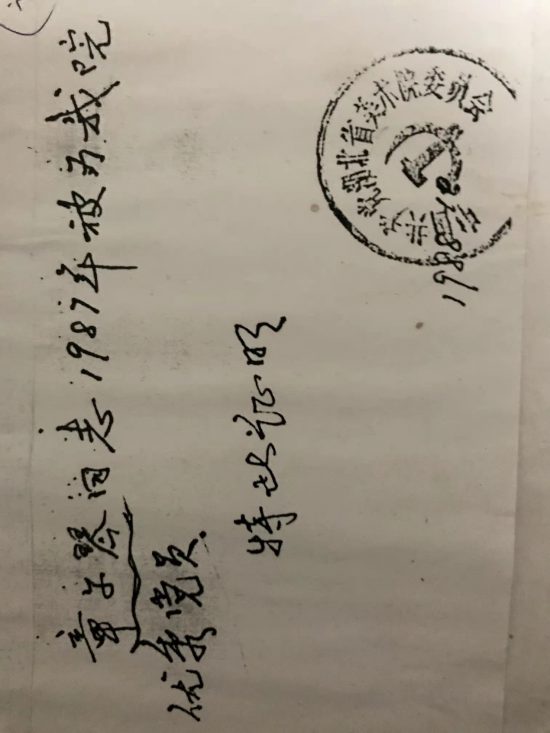 章子琴同志1987年被为我院
优秀党员.
特此证明
共产党湖北省美术院委员会
1988